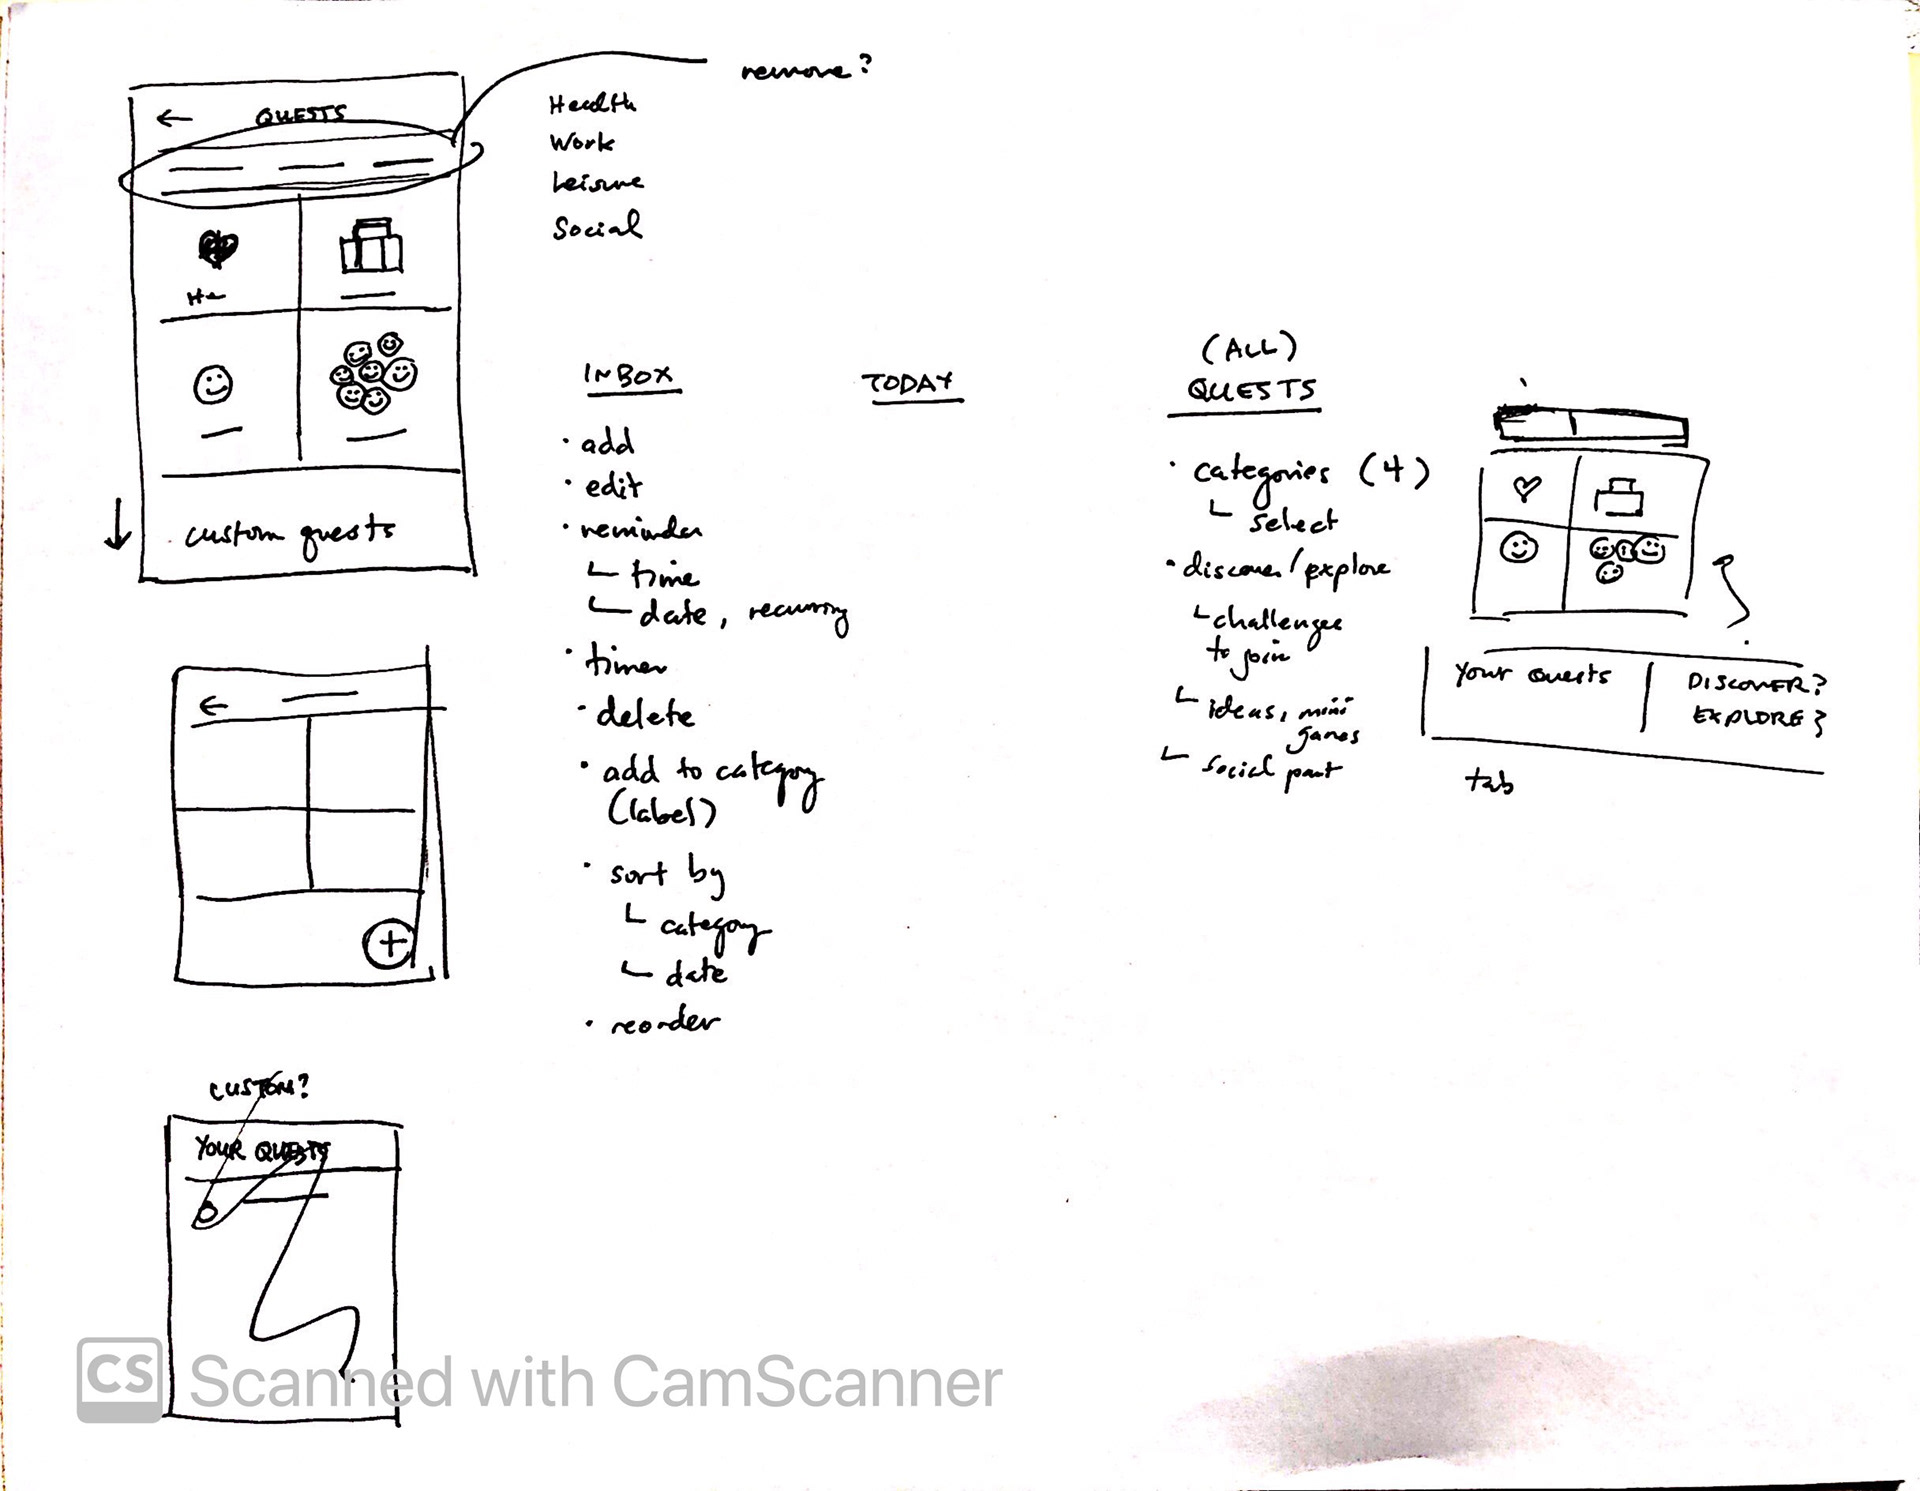 remove?
← QUESTS
Health
Work
Leisure
Social
He
custom quests
INBOX
• add
• edit
• reminder
└ time
└ date, recurring
• timer
• delete
• add to category
(label)
• sort by
└ category
└ date
• reorder
TODAY
(ALL)
QUESTS
• categories (4)
└ select
• discover/explore
└ challenges
to join
└ ideas, mini
games
└ social part
Your Quests
DISCOVER?
EXPLORE?
tab
CUSTOM?
YOUR QUESTS
CS Scanned with CamScanner